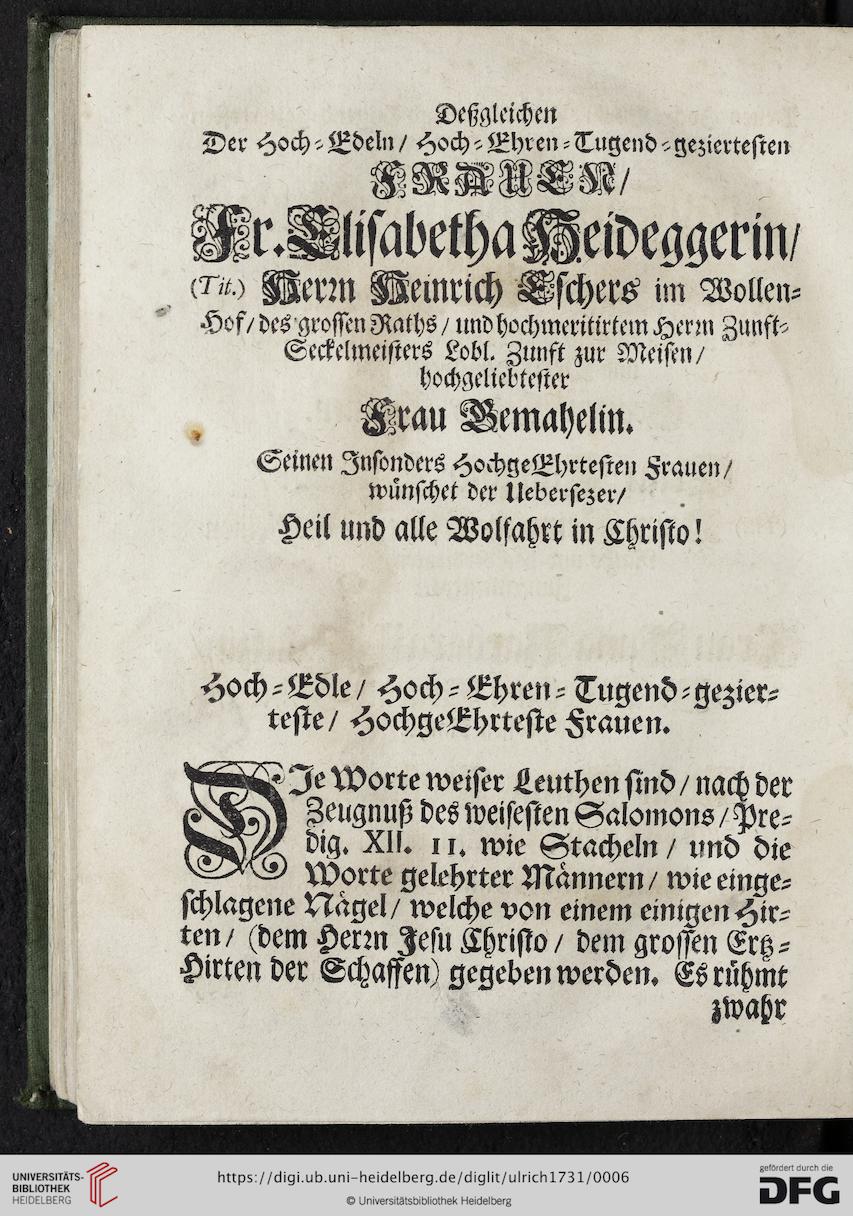 Deßgleichen
Der Hoch-Edeln/ Hoch-Ehren-Tugend-geziertesten
FRAUEN/
Fr. Elisabetha Heideggerin/
(Tit.) Herrn Heinrich Eschers im Wollen-
Hof/ des grossen Raths/ und hochmeritirtem Herrn Zunft-
Seckelmeisters Lobl. Zunft zur Meisen/
hochgeliebtester
Frau Gemahelin.
Seinen Insonders HochgeEhrtesten Frauen/
wünschet der Uebersezer/
Heil und alle Wolfahrt in Christo!
Hoch-Edle/ Hoch-Ehren-Tugend-gezier-
teste/ HochgeEhrteste Frauen.
DIe Worte weiser Leuthen sind/ nach der
Zeugnuß des weisesten Salomons/ Pre-
dig. XII. 11. wie Stacheln/ und die
Worte gelehrter Männern/ wie einge-
schlagene Nägel/ welche von einem einigen Hir-
ten/ (dem Herrn Jesu Christo/ dem grossen Ertz-
Hirten der Schaffen) gegeben werden. Es rühmt
zwahr
UNIVERSITÄTS-
BIBLIOTHEK
HEIDELBERG
https://digi.ub.uni-heidelberg.de/diglit/ulrich1731/0006
© Universitätsbibliothek Heidelberg
gefördert durch die
DFG